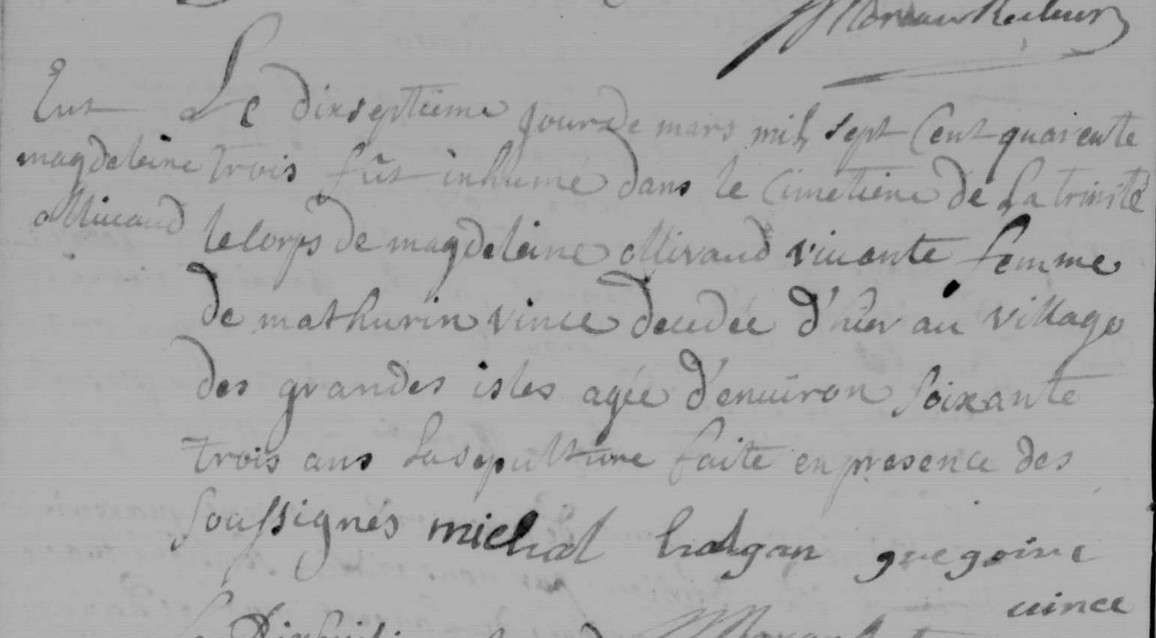 Moreau Recteur
Ent
magdeleine
ollivaud
Le dixseptieme jour de mars mil sept Cent quarente
trois fût inhumé dans le Cimetiere de La trinité
le corps de magdeleine ollivaud vivante femme
de mathurin vince decedée d'hier au village
des grandes isles agée d'enuiron soixante
trois ans La sepulture faite en presence des
soussignés michel halgan gregoire
vince